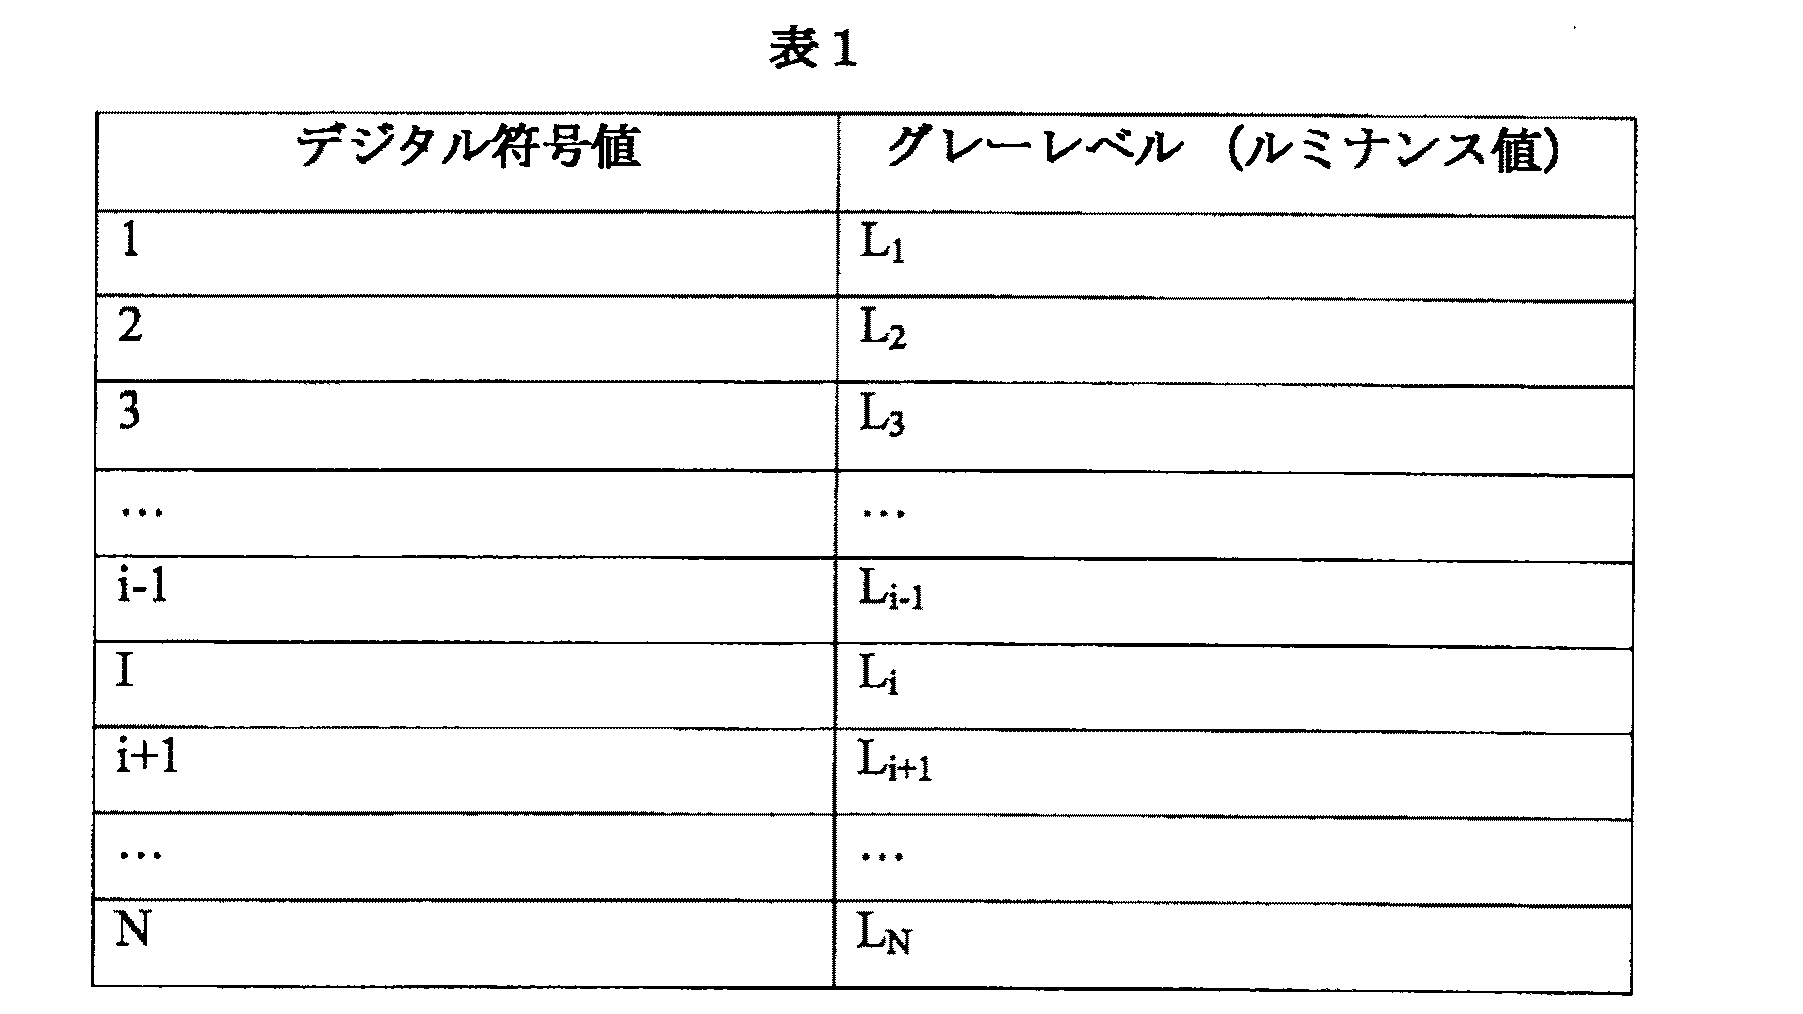 表1
デジタル符号値 グレーレベル（ルミナンス値）
1 L₁
2 L₂
3 L₃
… …
i-1 Lᵢ₋₁
I Lᵢ
i+1 Lᵢ₊₁
… …
N L_N